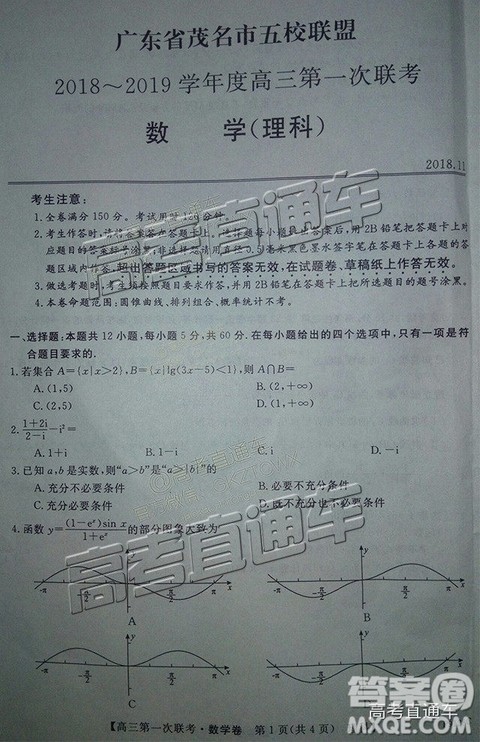 广东省茂名市五校联盟
2018～2019学年度高三第一次联考
数 学(理科)
2018.11
考生注意:
1.全卷满分150分。考试用时120分钟。
2.考生作答时,请将答案答在答题卡上。选择题每小题选出答案后,用2B铅笔把答题卡上对
应题目的答案标号涂黑;非选择题请用直径0.5毫米黑色墨水签字笔在答题卡上各题的答
题区域内作答,超出答题区域书写的答案无效,在试题卷、草稿纸上作答无效。
3.做选考题时,考生须按照题目要求作答,并用2B铅笔在答题卡上把所选题目的题号涂黑。
4.本卷命题范围:圆锥曲线、排列组合、概率统计不考。
一、选择题:本题共12小题,每小题5分,共60分.在每小题给出的四个选项中,只有一项是符
合题目要求的.
1.若集合A={x|x>2},B={x|lg(3x-5)<1},则A∩B=
A.(1,5) B.(2,+∞)
C.(2,5) D.(1,+∞)
2.(1+2i)/(2-i)-i²=
A.1+i B.1-i C.i D.-i
3.已知a,b是实数,则"a>b"是"a>|b|"的
A.充分不必要条件 B.必要不充分条件
C.充要条件 D.既不充分也不必要条件
4.函数y=(1-eˣ)sin x/(1+eˣ)的部分图象大致为
y y
-π -π/2 π/2 π x -π -π/2 π/2 π x
A B
y y
-π -π/2 π/2 π x -π -π/2 π/2 π x
C
【高三第一次联考·数学卷 第1页(共4页)
高考直通车
高考直通车
高考直通车
答案卷
高考直通车